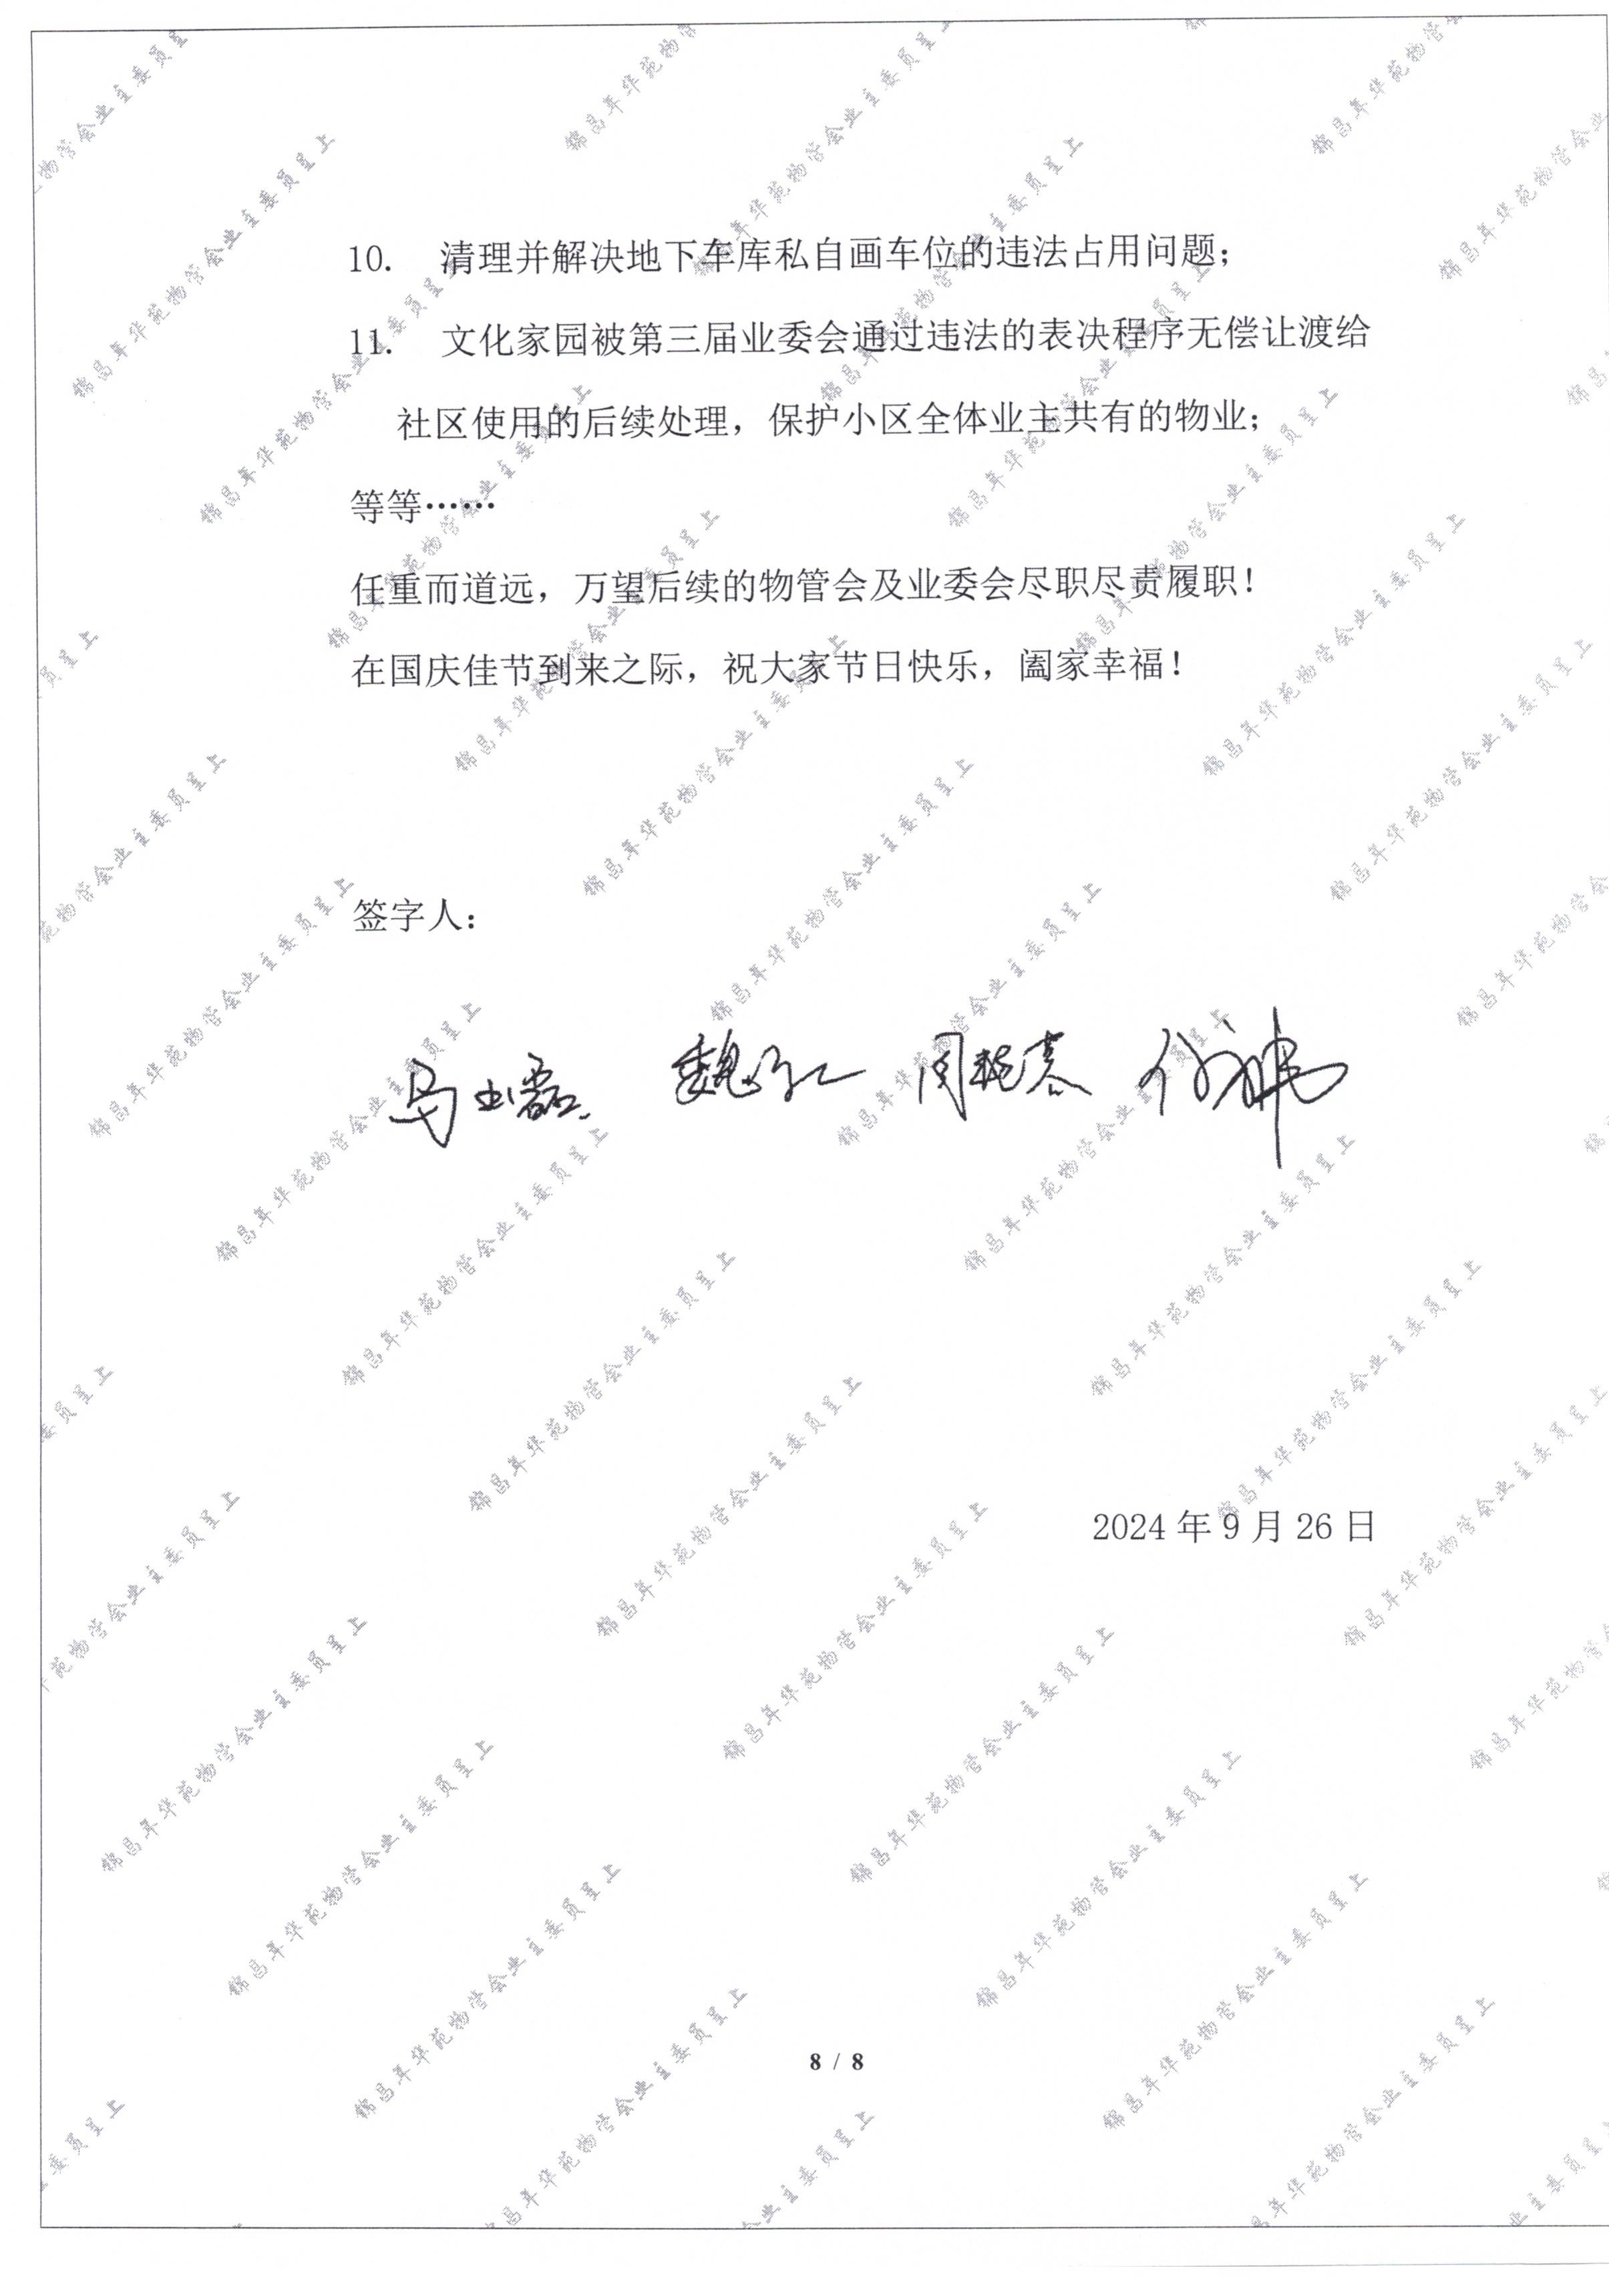 10. 清理并解决地下车库私自画车位的违法占用问题；
11. 文化家园被第三届业委会通过违法的表决程序无偿让渡给
社区使用的后续处理，保护小区全体业主共有的物业；
等等……
任重而道远，万望后续的物管会及业委会尽职尽责履职！
在国庆佳节到来之际，祝大家节日快乐，阖家幸福！
签字人：
2024 年 9 月 26 日
8 / 8
锦昌年华苑物管会业主委员呈上